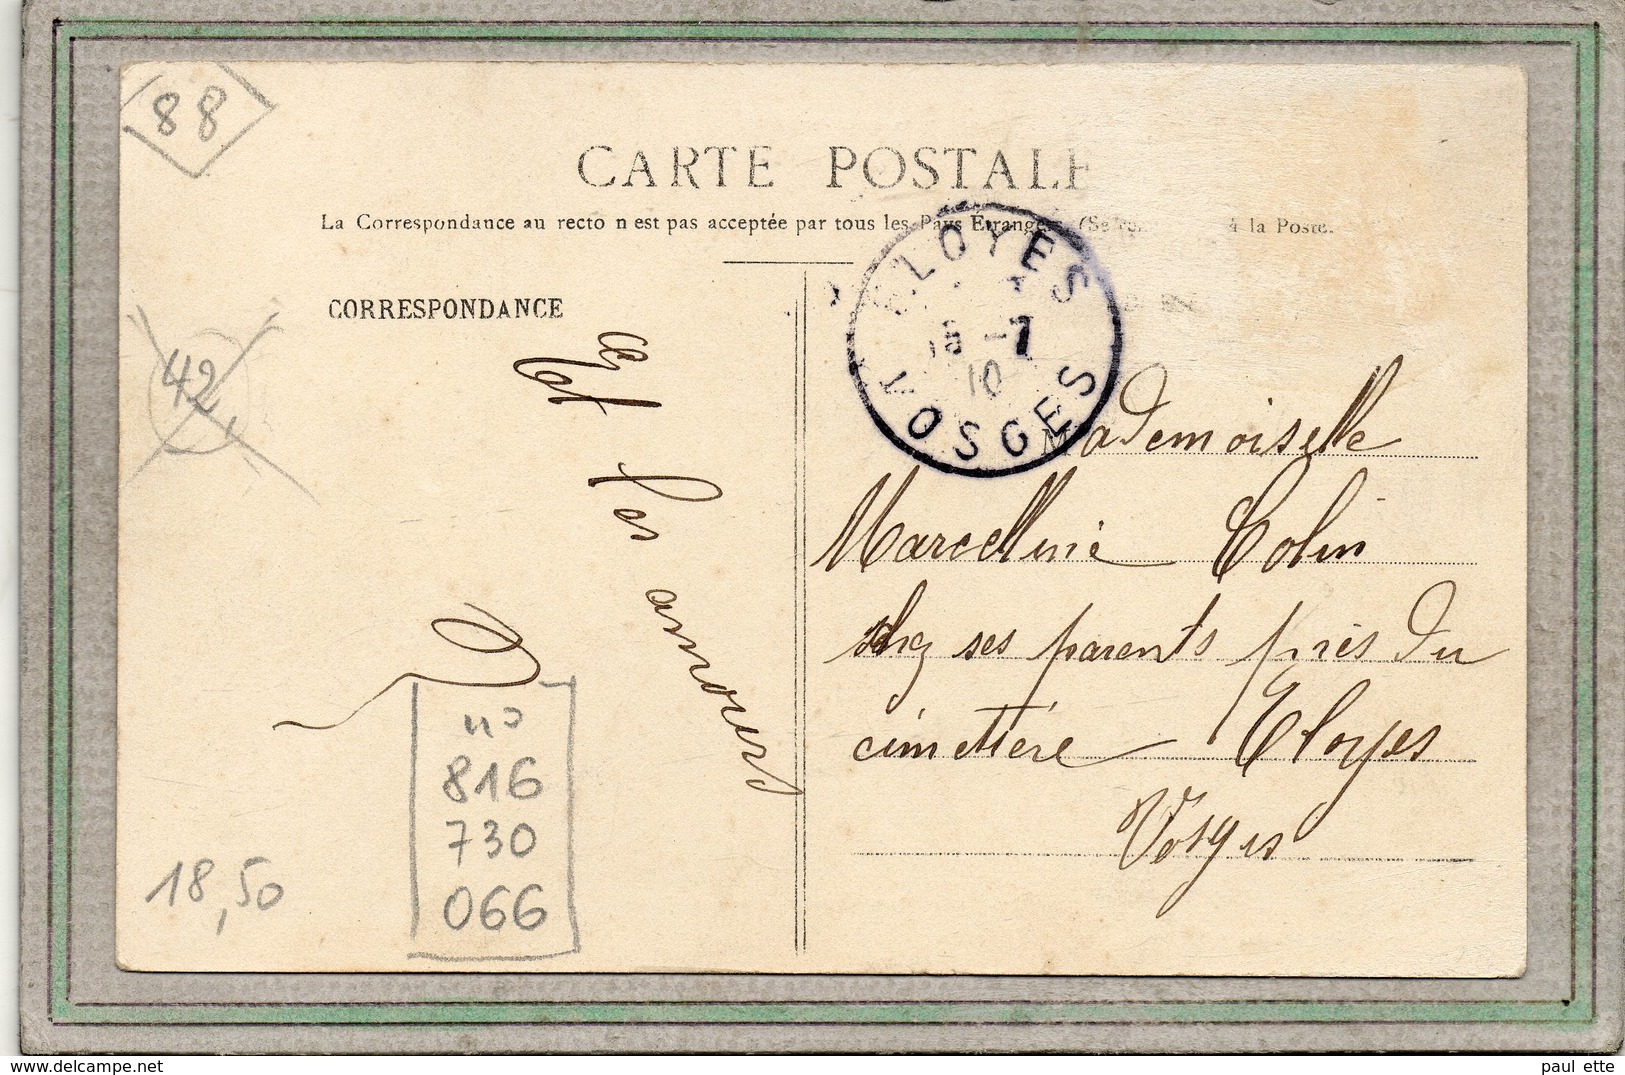 88
CARTE POSTALE
La Correspondance au recto n est pas acceptée par tous les Pays Étrangers (Se à la Poste.
CORRESPONDANCE
ELOYES
15 -7
10
VOSGES
42
Et les amours
Mademoiselle
Marcelline Colin
chez ses parents près du
cimetière Eloyes
Vosges
n°
816
730
066
18,50
paul ette